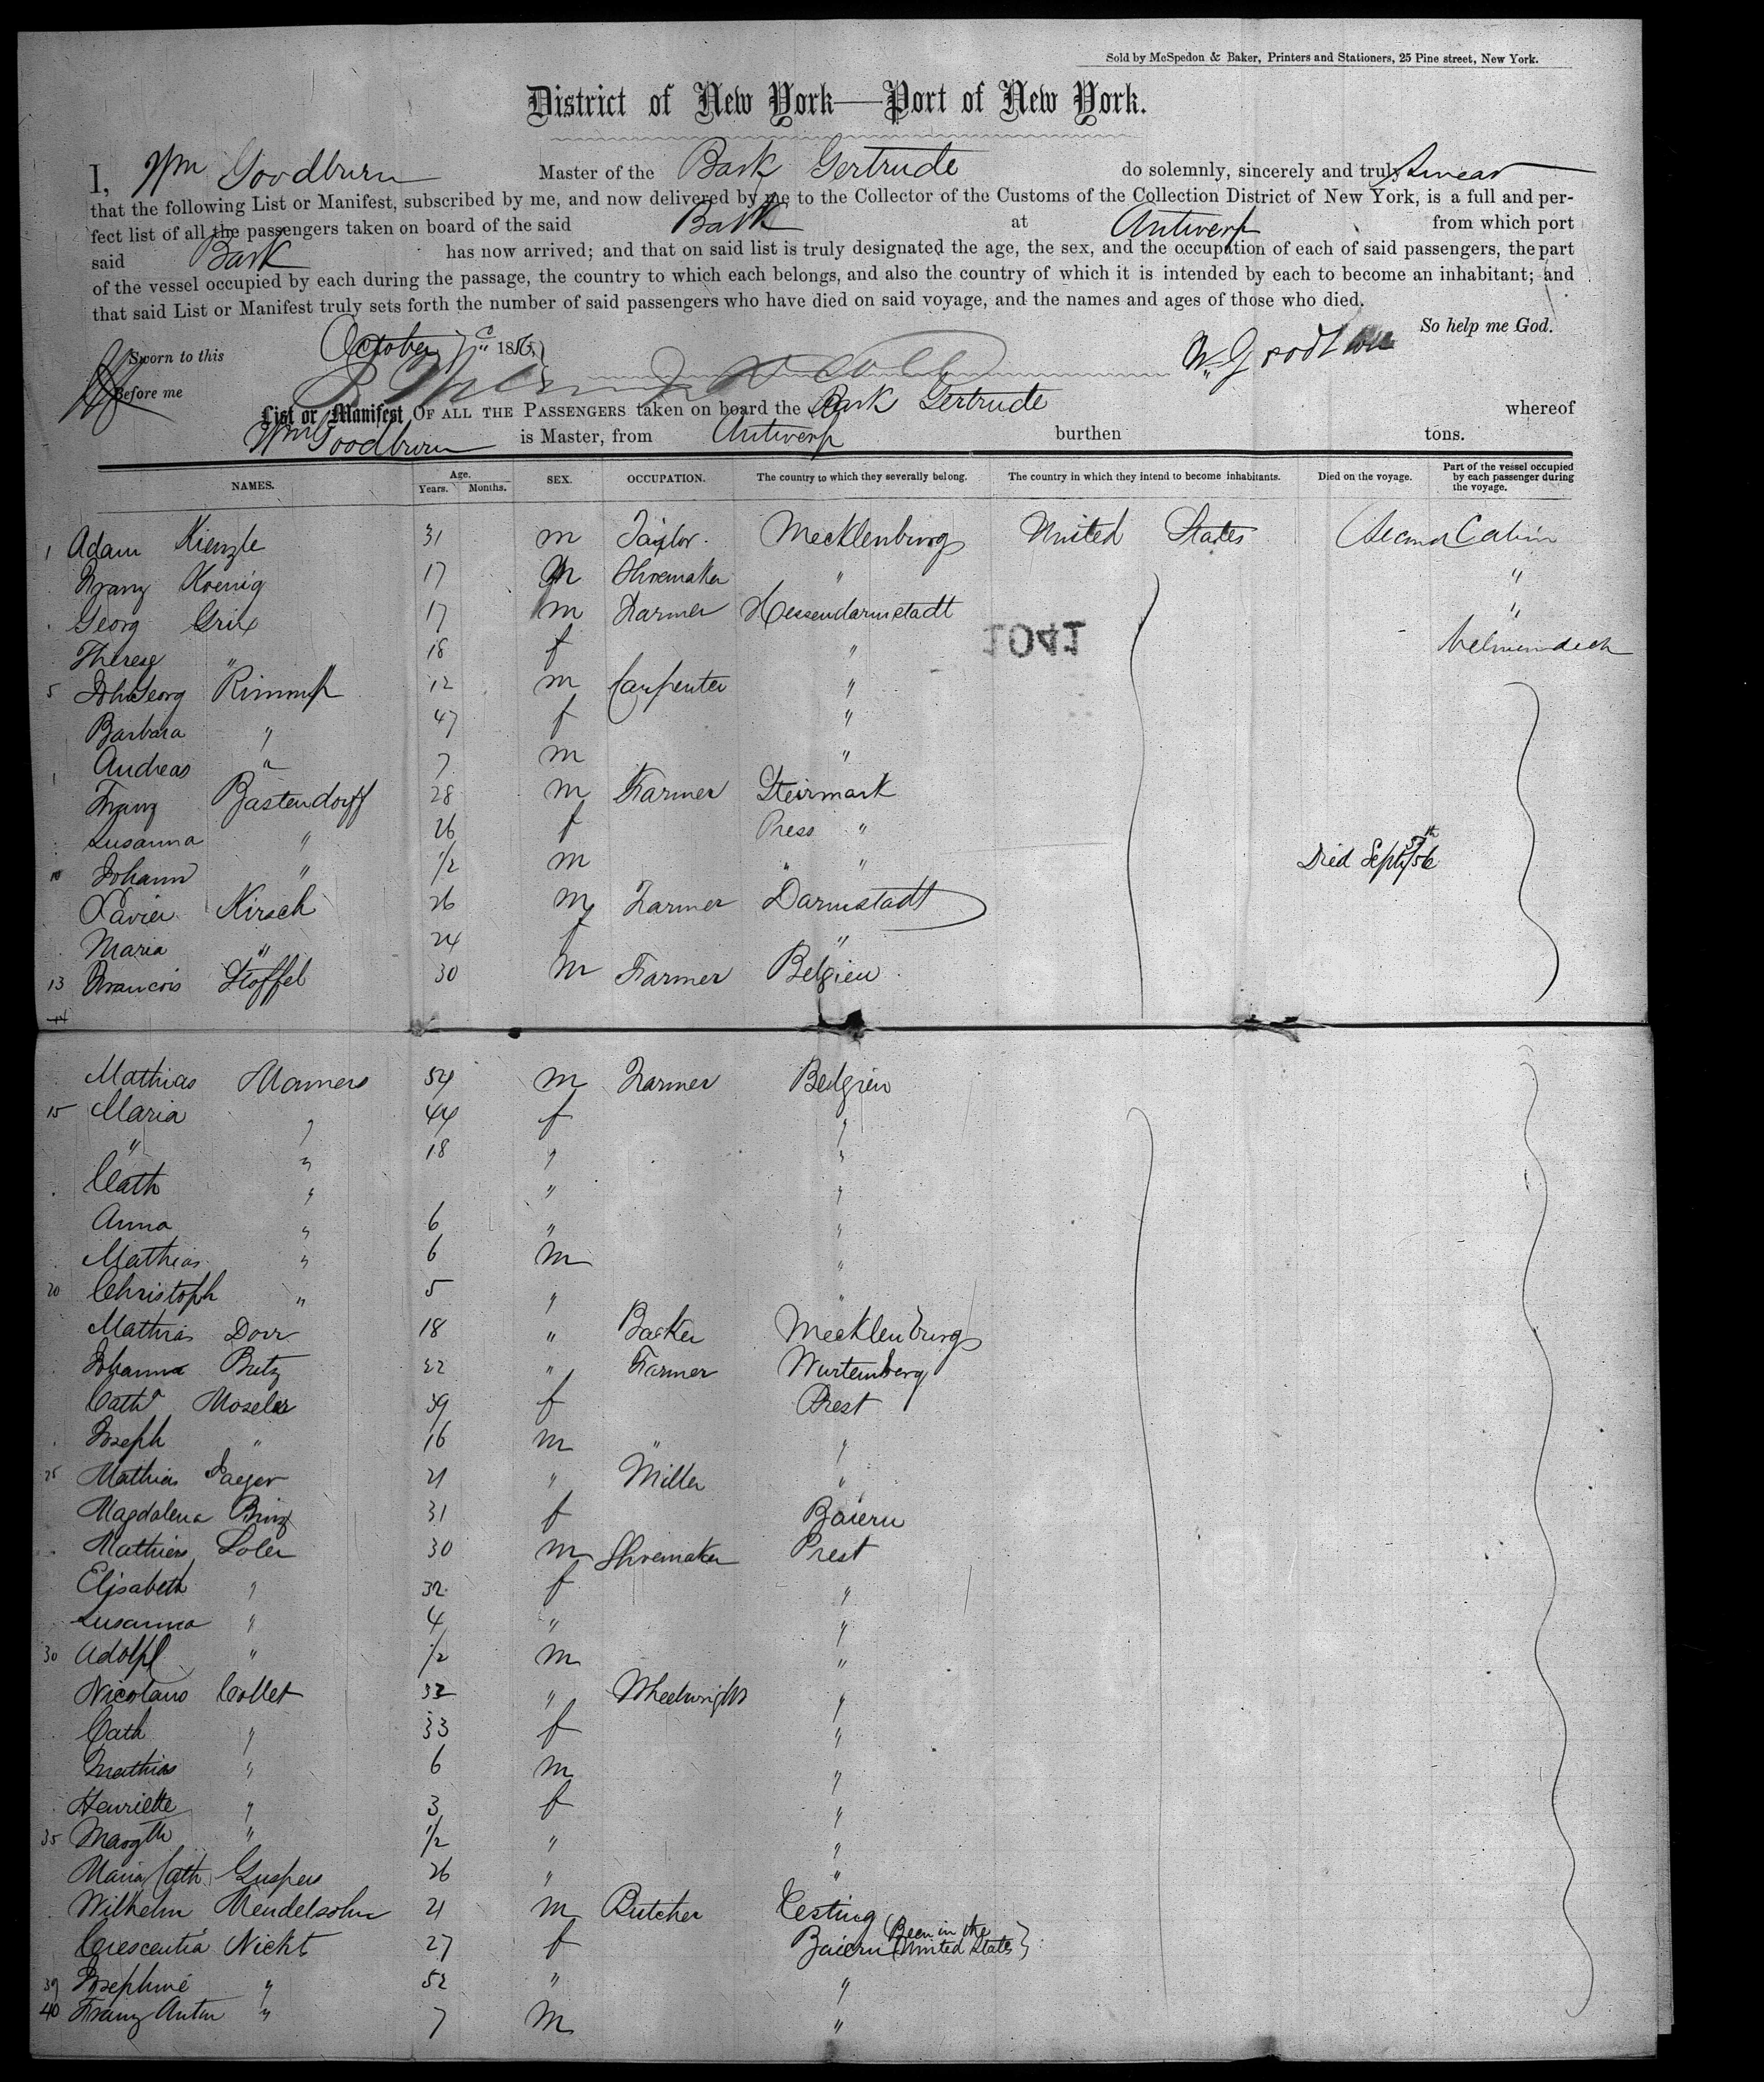 Sold by McSpedon & Baker, Printers and Stationers, 25 Pine street, New York.
District of New York—Port of New York.
I, Wm Goodburn Master of the Bark Gertrude do solemnly, sincerely and truly swear
that the following List or Manifest, subscribed by me, and now delivered by me to the Collector of the Customs of the Collection District of New York, is a full and per-
fect list of all the passengers taken on board of the said Bark at Antwerp from which port
said Bark has now arrived; and that on said list is truly designated the age, the sex, and the occupation of each of said passengers, the part
of the vessel occupied by each during the passage, the country to which each belongs, and also the country of which it is intended by each to become an inhabitant; and
that said List or Manifest truly sets forth the number of said passengers who have died on said voyage, and the names and ages of those who died.
So help me God.
Sworn to this October 1856
Before me
List or Manifest OF ALL THE PASSENGERS taken on board the Bark Gertrude whereof
Wm Goodburn is Master, from Antwerp burthen tons.
NAMES. Age. Years. Months. SEX. OCCUPATION. The country to which they severally belong. The country in which they intend to become inhabitants. Died on the voyage. Part of the vessel occupied by each passenger during the voyage.
1 Adam Kienzle 31 m Taylor. Mecklenburg United States Second Cabin
Franz Koenig 17 m Shoemaker " "
Georg Grix 17 m Farmer Hessendarmstadt "
Therese " 18 f "
5 Joh Georg 12 m Carpenter "
Barbara " 47 f "
Andreas " 7 m "
Franz Bastendorff 28 m Farmer Steirmark
Susanna " 26 f Press "
10 Johann " 1/2 m " " Died Septb 56
Xavier Kirsch 26 m Farmer Darmstadt
Maria " 24 f "
13 Francois Stoffel 30 m Farmer Belgien
14
Mathias 54 m Farmer Belgien
15 Maria " 44 f "
" " 18 " "
Cath " " "
Anna " 6 " "
Mathias " 6 m "
20 Christoph " 5 " "
Mathias Dorr 18 " Backer Mecklenburg
Johann 22 " Farmer Wurtemberg
Cath Moseler 39 f Prest
Joseph " 16 m " "
25 Mathias Jaeger 21 " Miller "
Magdalena Brinz 31 f Baiern
Mathias Soler 30 m Shoemaker Prest
Elisabeth " 32 f "
Susanna " 4 " "
30 Adolph " 1/2 m "
Nicolaus Collet 32 " Wheelwright "
Cath " 33 f "
Mathias " 6 m "
Henriette " 3 f "
35 Margth " 1/2 " "
Maria Cath 26 " "
Wilhelm Mendelsohn 21 m Butcher
Crescentia Nickt 27 f Baiern (Been in the United States)
39 Josephine " 52 " "
40 Franz Anton " 7 m "